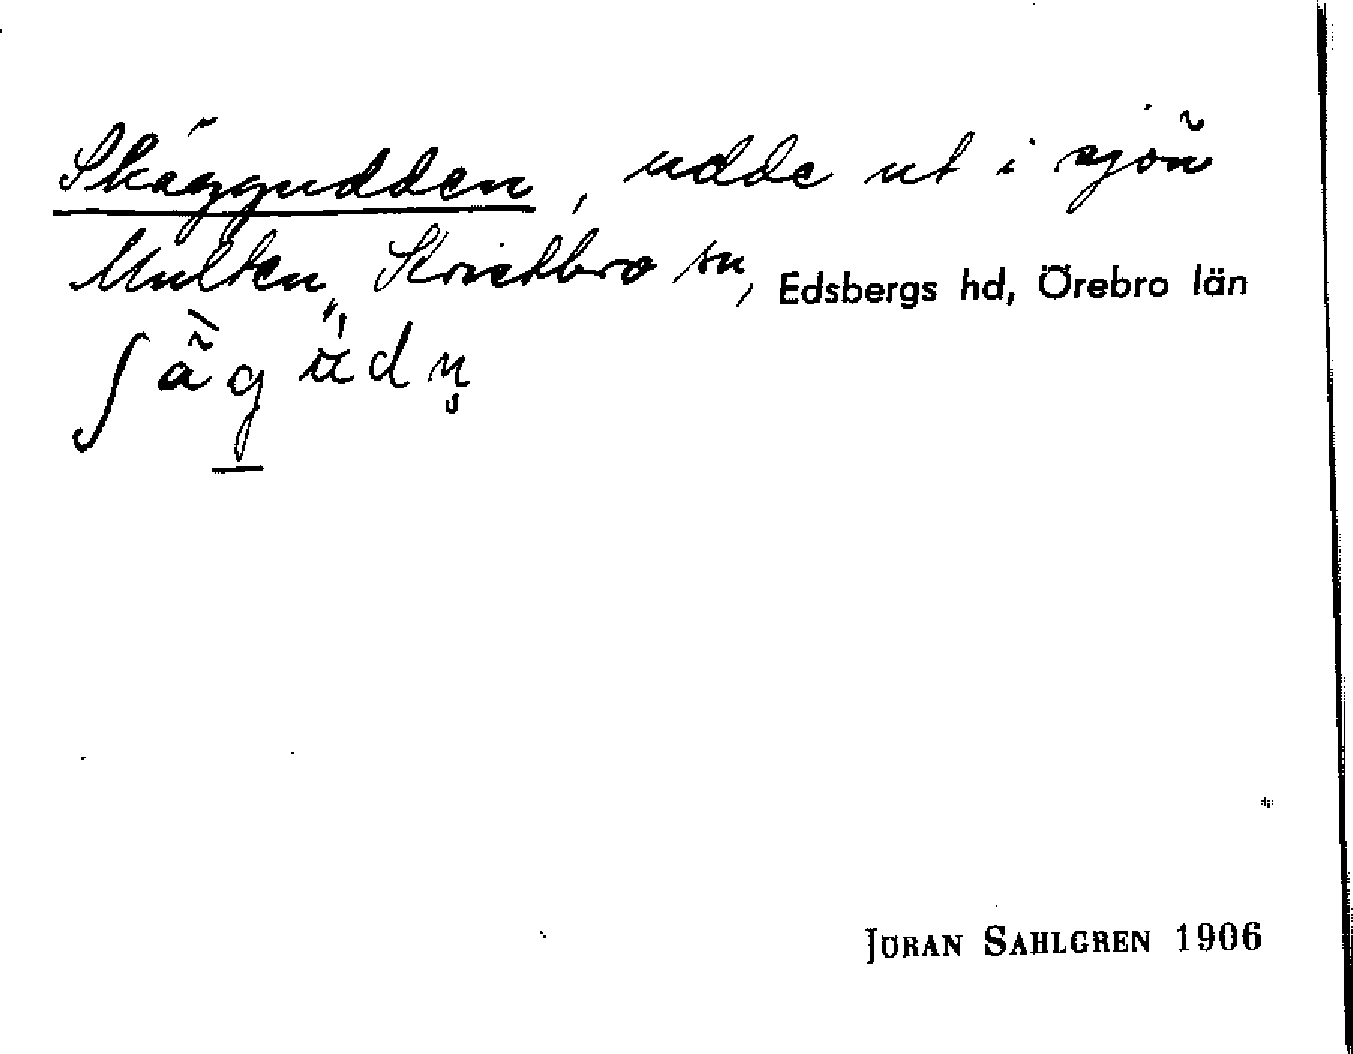 Skäggudden, udde ut i sjön
Multen, Kvistbro sn, Edsbergs hd, Örebro län
Jöran Sahlgren 1906